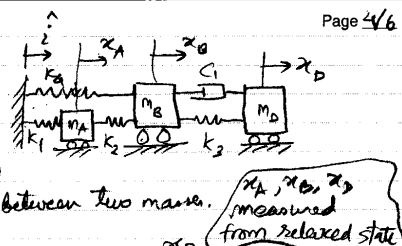 Page 4/6
î
x_A
x_B
x_D
K_4
C_1
m_A
m_B
m_D
K_1
K_2
K_3
between two masses.
x_A, x_B, x_D
measured
from relaxed state